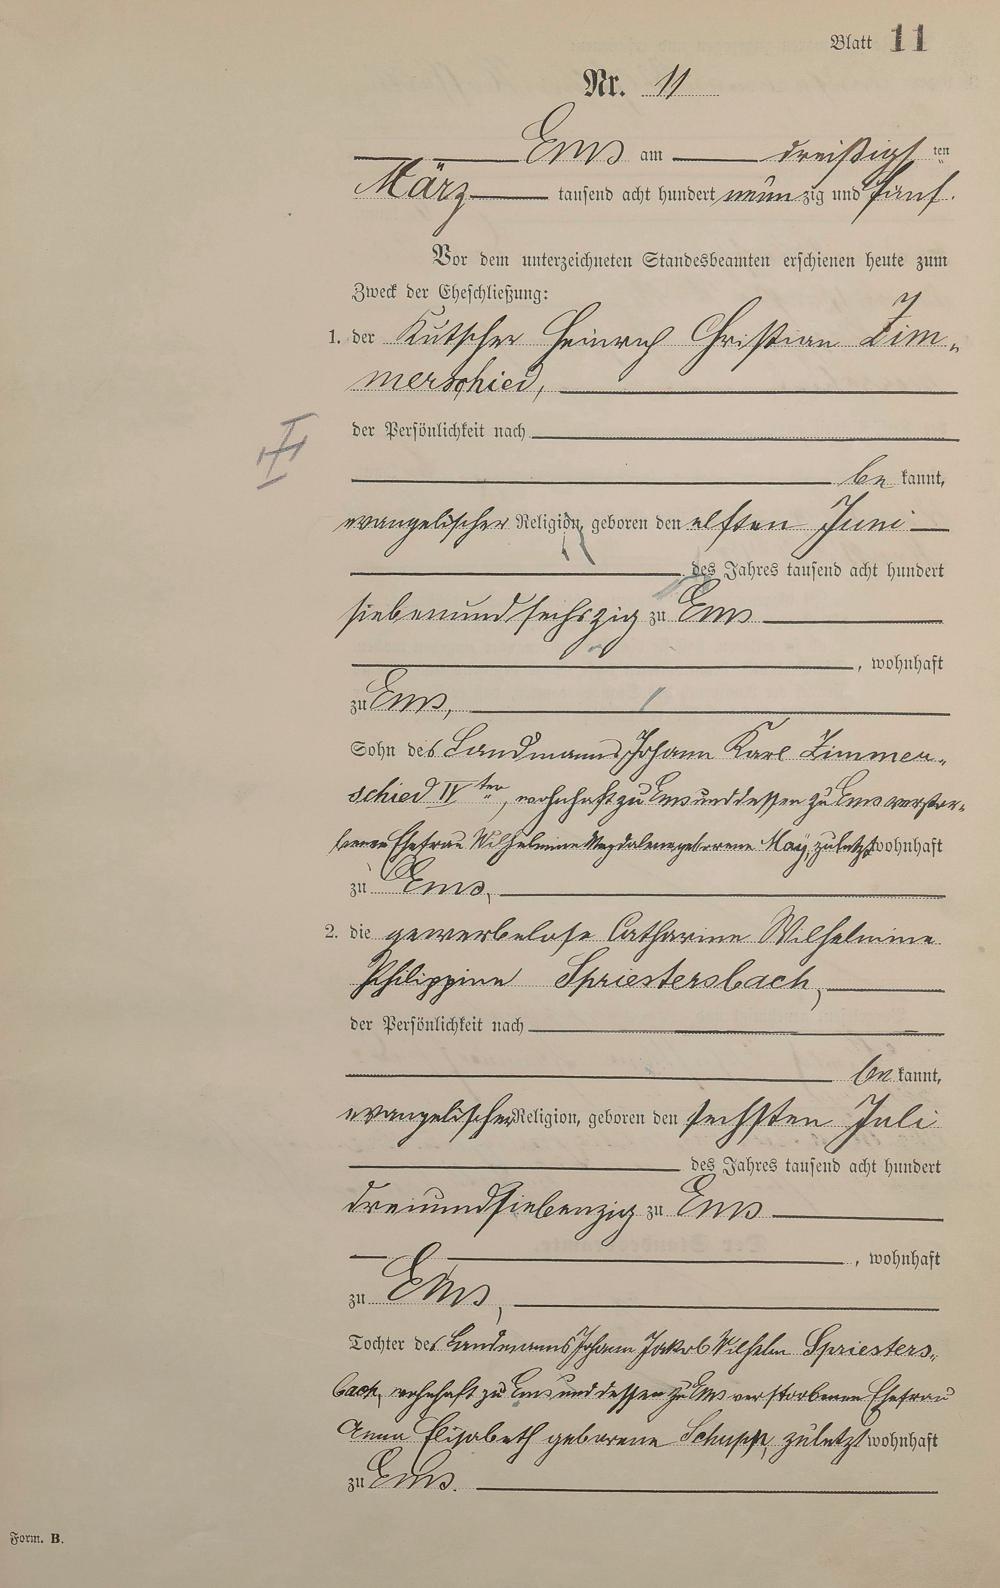 Blatt 11
Nr. 11
Ems am dreißigsten
März tausend acht hundert neunzig und fünf.
Vor dem unterzeichneten Standesbeamten erschienen heute zum
Zweck der Eheschließung:
1. der Kutscher Heinrich Christian Zim-
merschied,
der Persönlichkeit nach
be kannt,
evangelischer Religion, geboren den elften Juni
des Jahres tausend acht hundert
siebenundsechszig zu Ems
, wohnhaft
zu Ems,
Sohn des Landmanns Johann Karl Zimmer-
schied IVten, wohnhaft zu Ems und dessen zu Ems verstor-
benen Ehefrau Wilhelmine Magdalene geborene May, zuletzt wohnhaft
zu Ems,
2. die gewerbelose Catharine Wilhelmine
Philippine Spriestersbach,
der Persönlichkeit nach
be kannt,
evangelischer Religion, geboren den sechsten Juli
des Jahres tausend acht hundert
dreiundsiebenzig zu Ems
, wohnhaft
zu Ems,
Tochter des Landmanns Johann Jakob Wilhelm Spriesters-
bach, wohnhaft zu Ems und dessen zu Ems verstorbenen Ehefrau
Anna Elisabeth geborene Schupp, zuletzt wohnhaft
zu Ems.
Form. B.